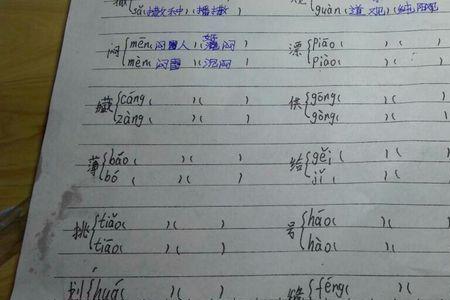 sǎ(撒种)(播撒) guàn(道观)(
闷 mēn(闷人)( 闷) 漂 piāo(
mèn(闷雷)(沉闷) piào(
藏 cáng( )( ) 供 gōng(
zàng( )( ) gòng(
薄 báo( )( ) 给 gěi( )(
bó( )( ) jǐ( )(
挑 tiāo( )( ) 号 háo( )(
tiǎo( )( ) hào( )(
划 huá( )( ) 缝 féng(